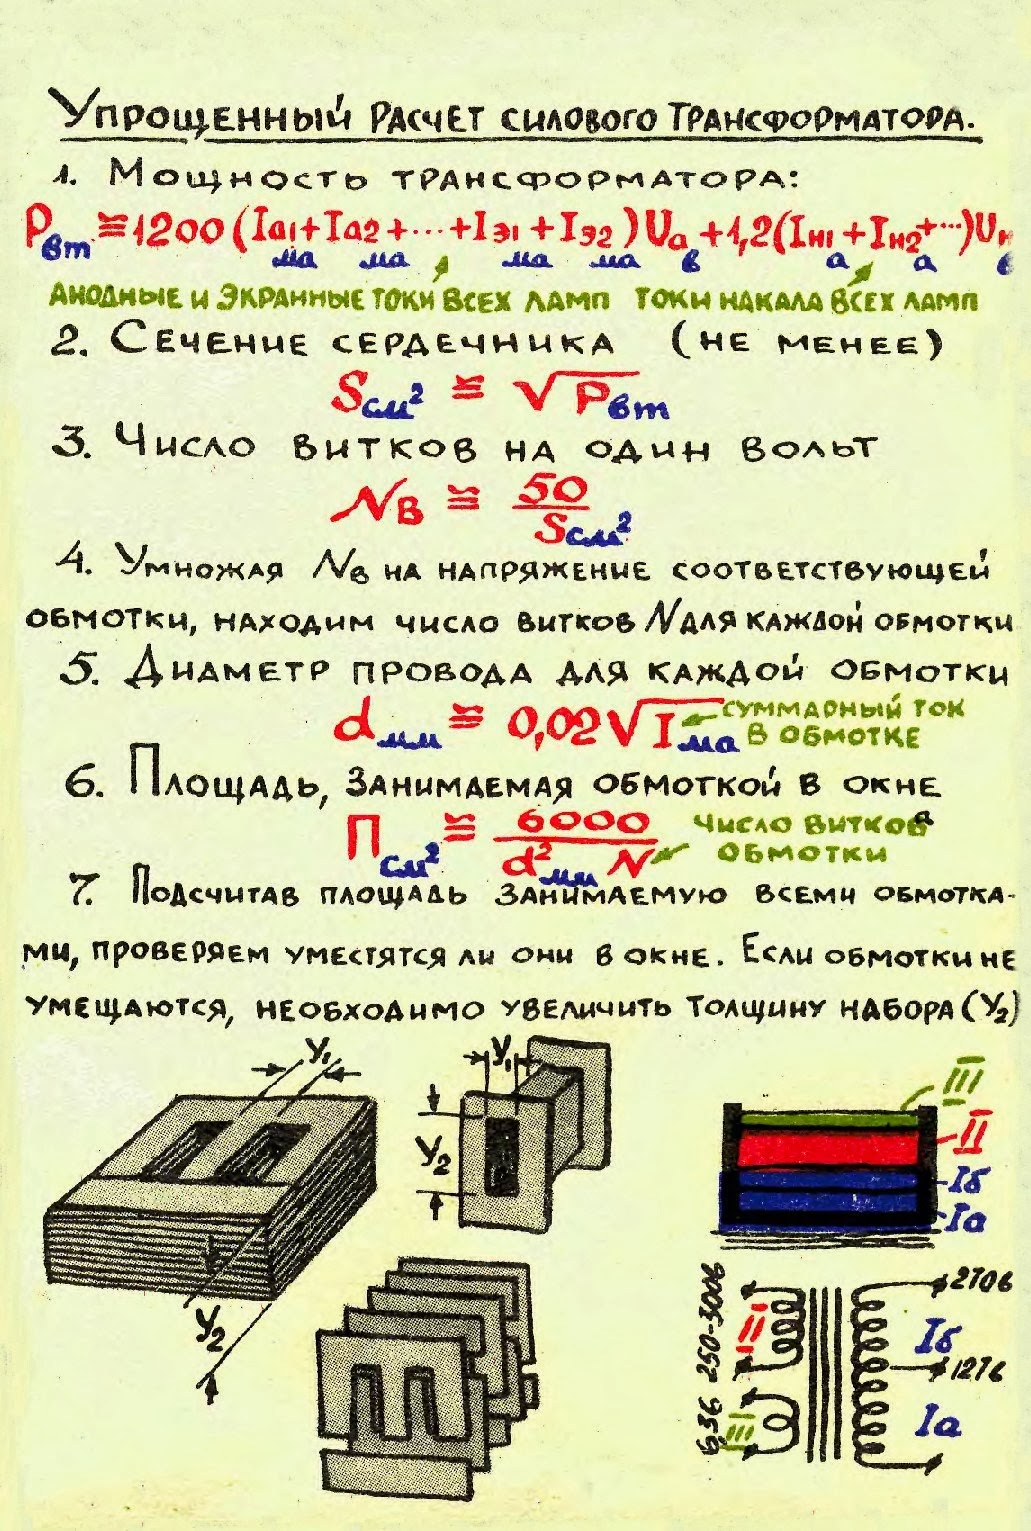 Упрощенный расчет силового трансформатора.
1. Мощность трансформатора:
Pвт ≅ 1200 (Iа1 + Iа2 + ··· + Iэ1 + Iэ2) Uа + 1,2 (Iн1 + Iн2 + ···) Uн
ма ма ма ма в а а в
Анодные и экранные токи всех ламп токи накала всех ламп
2. Сечение сердечника (не менее)
Sсм² ≅ √Pвт
3. Число витков на один вольт
Nв ≅ 50 / Sсм²
4. Умножая Nв на напряжение соответствующей
обмотки, находим число витков N для каждой обмотки
5. Диаметр провода для каждой обмотки
dмм ≅ 0,02 √Iма суммарный ток
в обмотке
6. Площадь, занимаемая обмоткой в окне
Псм² ≅ 6000 / d²мм N число витков
обмотки
7. Подсчитав площадь занимаемую всеми обмотка-
ми, проверяем уместятся ли они в окне. Если обмотки не
умещаются, необходимо увеличить толщину набора (У2)
У1
У2
У1
У2
III
II
Iб
Iа
250-300в
II
6,3б
III
270в
Iб
127в
Iа